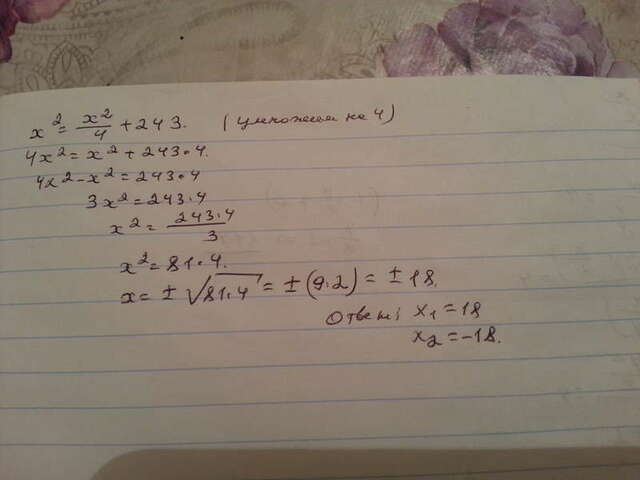 x² = x²/4 + 243. (умножаем на 4)
4x² = x² + 243·4.
4x² - x² = 243·4
3x² = 243·4
x² = 243·4/3
x² = 81·4.
x = ± √81·4 = ± (9·2) = ± 18.
Ответ: x₁ = 18
x₂ = -18.